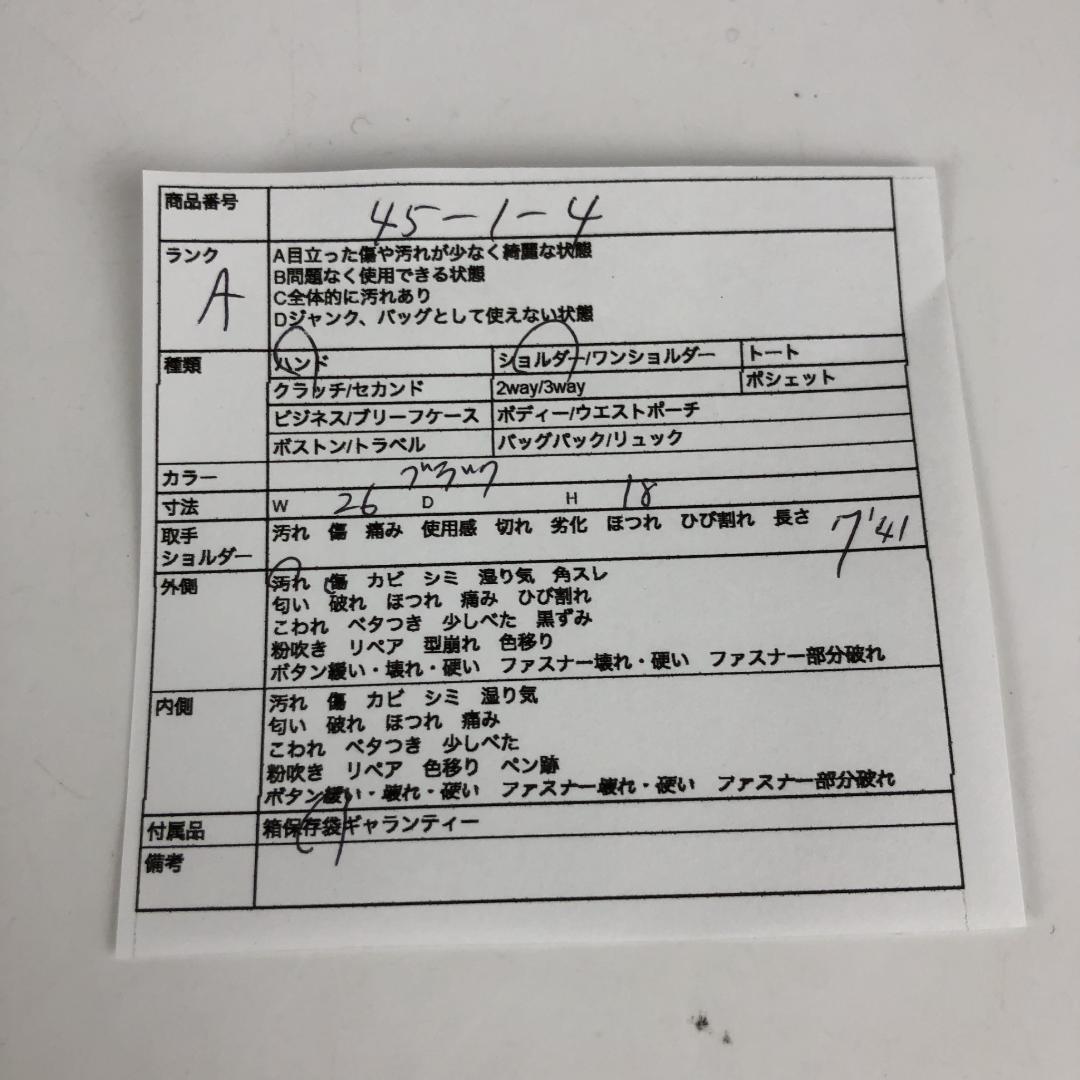 商品番号 45-1-4
ランク A A目立った傷や汚れが少なく綺麗な状態
B問題なく使用できる状態
C全体的に汚れあり
Dジャンク、バッグとして使えない状態
種類 ハンド ショルダー/ワンショルダー トート
クラッチ/セカンド 2way/3way ポシェット
ビジネス/ブリーフケース ボディー/ウエストポーチ
ボストン/トラベル バッグパック/リュック
カラー ブラック
寸法 W 26 D H 18
取手 汚れ 傷 痛み 使用感 切れ 劣化 ほつれ ひび割れ 長さ
ショルダー
外側 汚れ 傷 カビ シミ 湿り気 角スレ
匂い 破れ ほつれ 痛み ひび割れ
こわれ ベタつき 少しべた 黒ずみ
粉吹き リペア 型崩れ 色移り
ボタン緩い・壊れ・硬い ファスナー壊れ・硬い ファスナー部分破れ
内側 汚れ 傷 カビ シミ 湿り気
匂い 破れ ほつれ 痛み
こわれ ベタつき 少しべた
粉吹き リペア 色移り ペン跡
ボタン緩い・壊れ・硬い ファスナー壊れ・硬い ファスナー部分破れ
付属品 箱保存袋ギャランティー
備考